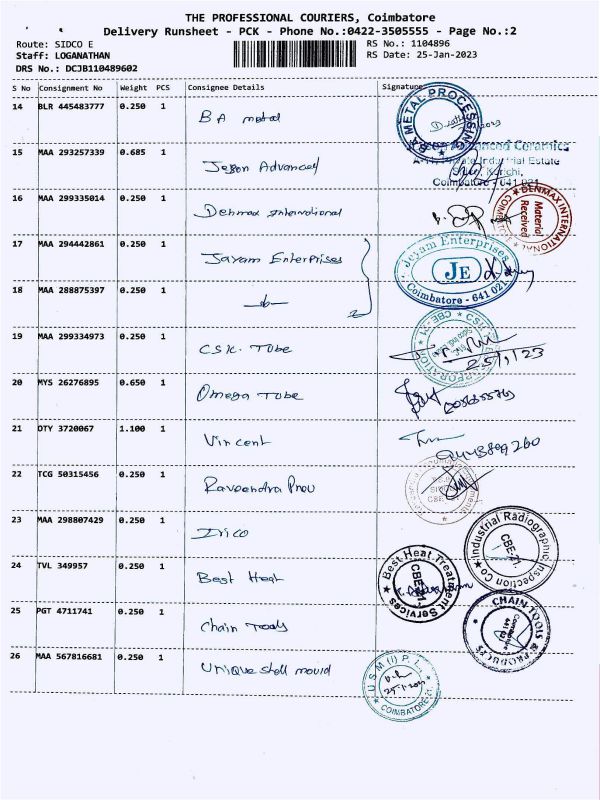 THE PROFESSIONAL COURIERS, Coimbatore
Delivery Runsheet - PCK - Phone No.:0422-3505555 - Page No.:2
Route: SIDCO E
RS No.: 1104896
Staff: LOGANATHAN
RS Date: 25-Jan-2023
DRS No.: DCJB110489602
S No Consignment No Weight PCS Consignee Details Signature
14 BLR 445483777 0.250 1 BA metal
BA METAL PROCESSING
15 MAA 293257339 0.685 1 Jeson Advanced
Advanced Ceramics
Private Industrial Estate
Coimbatore - 641 021
16 MAA 299335014 0.250 1 Denmax International
DENMAX INTERNATIONAL
COIMBATORE
Material
Received
17 MAA 294442861 0.250 1 Jayam Enterprises
Jayam Enterprises
JE
Coimbatore - 641 021
18 MAA 288875397 0.250 1
19 MAA 299334973 0.250 1 CSK. Tube
25/1/23
20 MYS 26276895 0.650 1 Omega Tube
21 OTY 3720067 1.100 1 Vincent
22 TCG 50315456 0.250 1
23 MAA 298807429 0.250 1 Irico
Industrial Radiographic Inspection Co
CBE-21.
24 TVL 349957 0.250 1 Best Heat
Best Heat Treatment Services
CBE-21.
25 PGT 4711741 0.250 1 Chain Tools
CHAIN TOOLS & PRODUCTS
Coimbatore
641 021
26 MAA 567816681 0.250 1 Unique shell mould
U S M (I) P. L.
COIMBATORE-21.